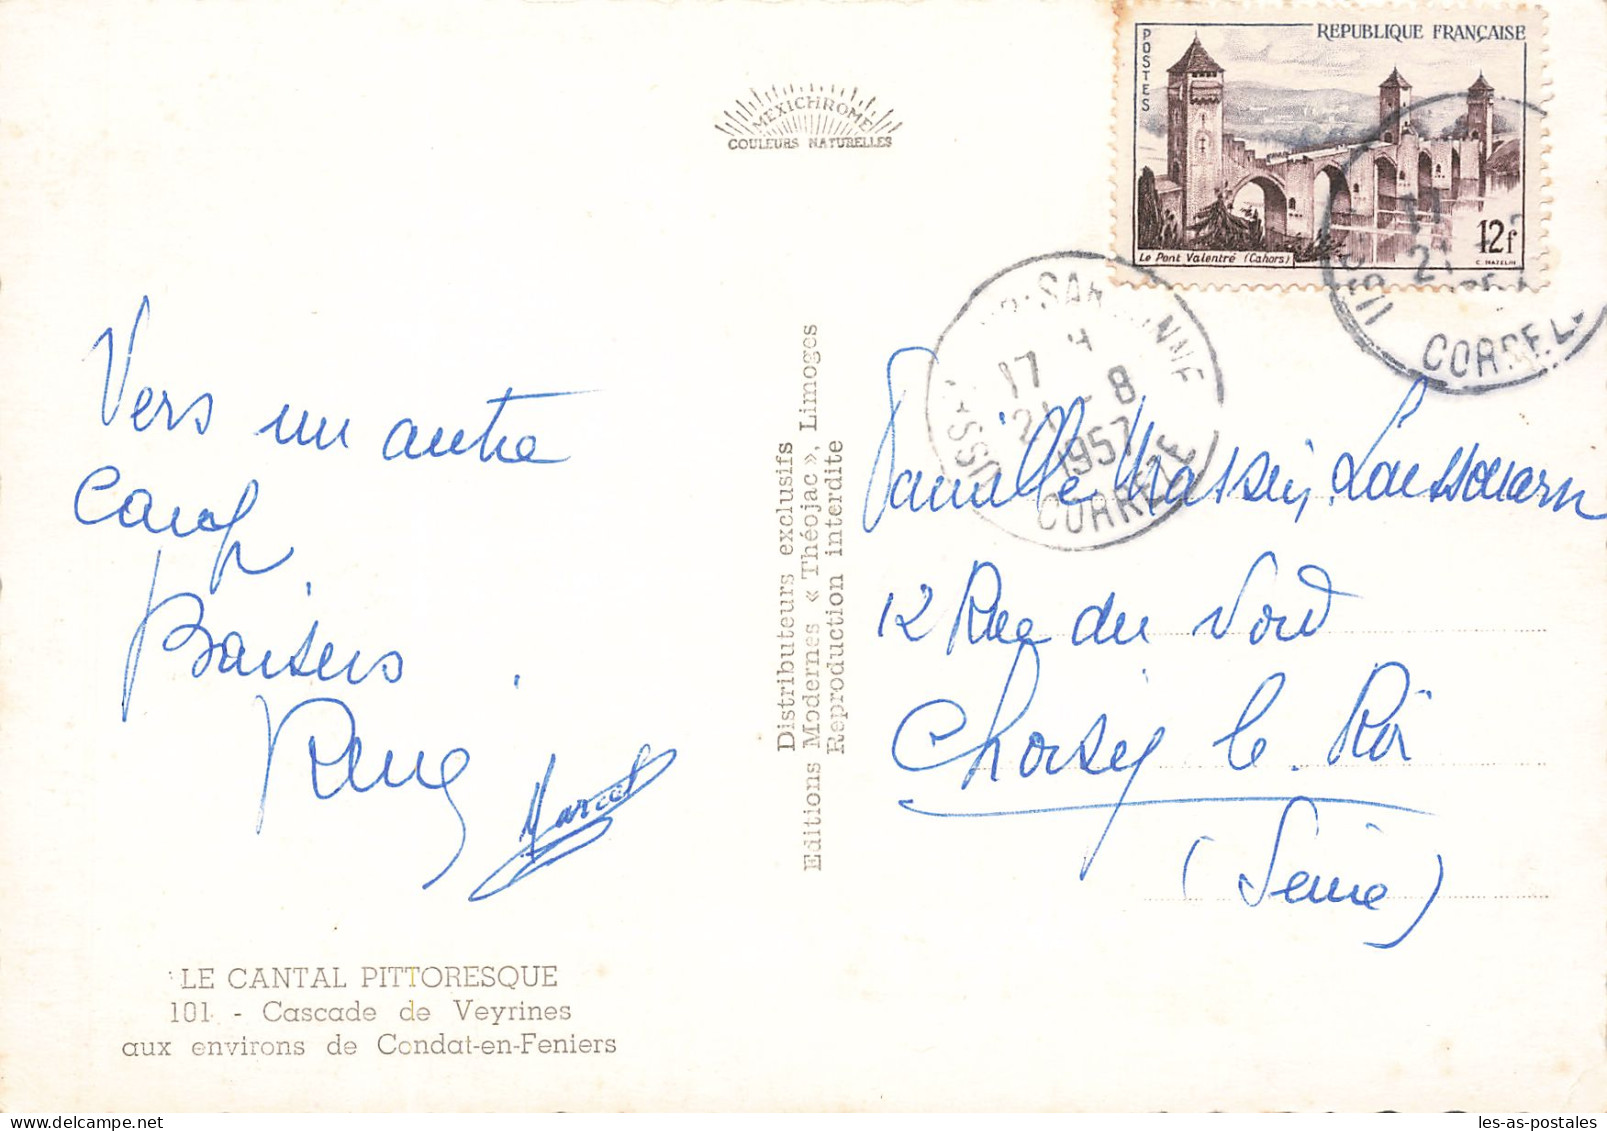 MEXICHROME
COULEURS NATURELLES
POSTES
REPUBLIQUE FRANÇAISE
12f
Le Pont Valentré (Cahors)
C. HAZELIN
USSEL
17 H
21 - 8
1957
CORRÈZE
17
21
CORRÈZ
Vers un autre
Camp
Baisers
René
Marcel
Distributeurs exclusifs
Editions Modernes « Théojac », Limoges
Reproduction interdite
Famille Massin,
12 Rue du Nord
Choisy le Roi
(Seine)
LE CANTAL PITTORESQUE
101. - Cascade de Veyrines
aux environs de Condat-en-Feniers
les-as-postales